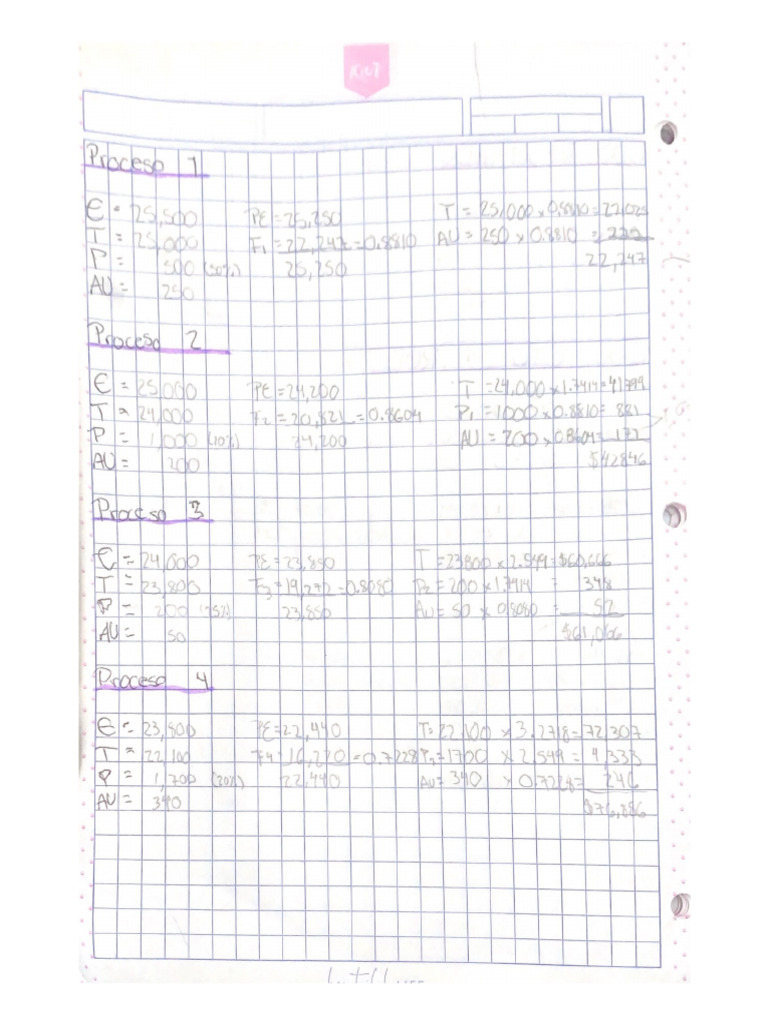 Kiut
Proceso 1
E = 25,500 PE=25,250 T = 25,000 x 0.8810 = 22,025
T = 25,000 F1=22,247=0.8810 AU = 250 x 0.8810 = 222
P = 500 (50%) 25,250 22,247
AU = 250
Proceso 2
E = 25,000 PE=24,200 T =24,000 x 1.7414=41799
T = 24,000 F2=20,821=0.8604 P1=1000 x 0.8810= 881
P = 1,000 (20%) 24,200 AU = 200 x 0.8604= 172
AU = 200 $42846
Proceso 3
E = 24,000 PE=23,850 T =23800 x 2.549=$60,666
T = 23,800 F3=19,272=0.8080 P2=200 x 1.7414 = 348
P = 200 (25%) 23,850 AU= 50 x 0.8080 = 52
AU = 50 $61,066
Proceso 4
E = 23,800 PE=22,440 T=22,100 x 3.2718=72,307
T = 22,100 F4=16,220=0.7228 P3=1700 x 2.549= 4,333
P = 1,700 (20%) 22,440 AU= 340 x 0.7228= 246
AU = 340 $76,886